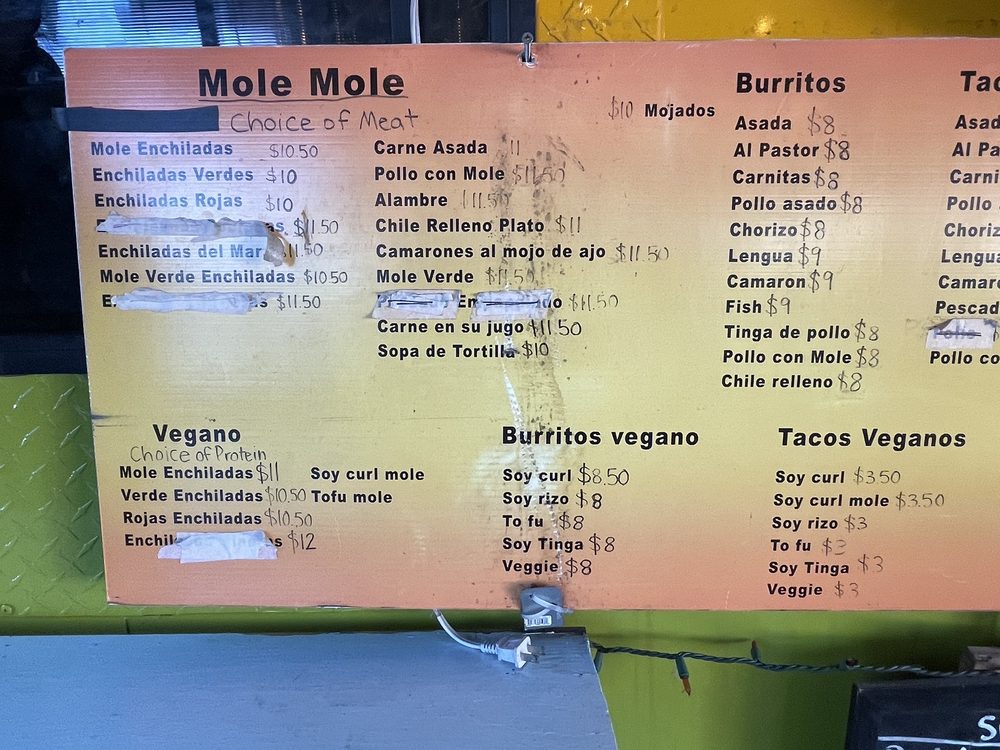 Mole Mole
Choice of Meat
Mole Enchiladas $10.50
Enchiladas Verdes $10
Enchiladas Rojas $10
$11.50
Enchiladas del Mar 11.50
Mole Verde Enchiladas $10.50
$11.50
Carne Asada 11
Pollo con Mole $11.50
Alambre 11.50
Chile Relleno Plato $11
Camarones al mojo de ajo $11.50
Mole Verde $11.50
$11.50
Carne en su jugo $11.50
Sopa de Tortilla $10
$10 Mojados
Burritos
Asada $8
Al Pastor $8
Carnitas $8
Pollo asado $8
Chorizo $8
Lengua $9
Camaron $9
Fish $9
Tinga de pollo $8
Pollo con Mole $8
Chile relleno $8
Tac
Asad
Al Pa
Carni
Pollo
Choriz
Lengua
Camar
Pescad
Pollo co
Vegano
Choice of Protein
Mole Enchiladas $11
Verde Enchiladas $10.50
Rojas Enchiladas $10.50
$12
Soy curl mole
Tofu mole
Burritos vegano
Soy curl $8.50
Soy rizo $8
To fu $8
Soy Tinga $8
Veggie $8
Tacos Veganos
Soy curl $3.50
Soy curl mole $3.50
Soy rizo $3
To fu $3
Soy Tinga $3
Veggie $3